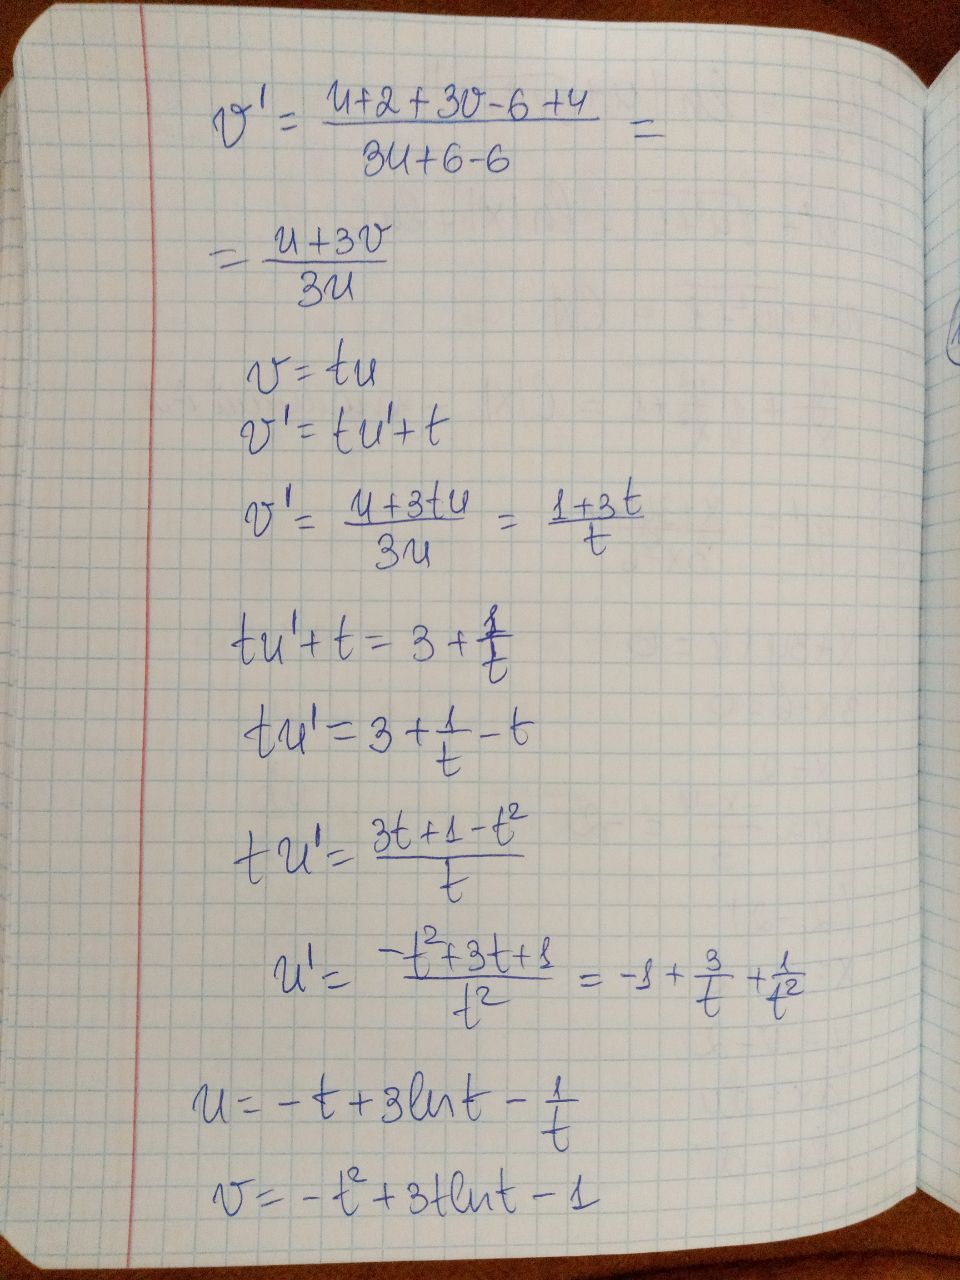 v' = (u+2+3v-6+4)/(3u+6-6) =
= (u+3v)/(3u)
v = tu
v' = tu' + t
v' = (u+3tu)/(3u) = (1+3t)/t
tu' + t = 3 + 1/t
tu' = 3 + 1/t - t
tu' = (3t+1-t²)/t
u' = (-t²+3t+1)/t² = -1 + 3/t + 1/t²
u = -t + 3lnt - 1/t
v = -t² + 3tlnt - 1